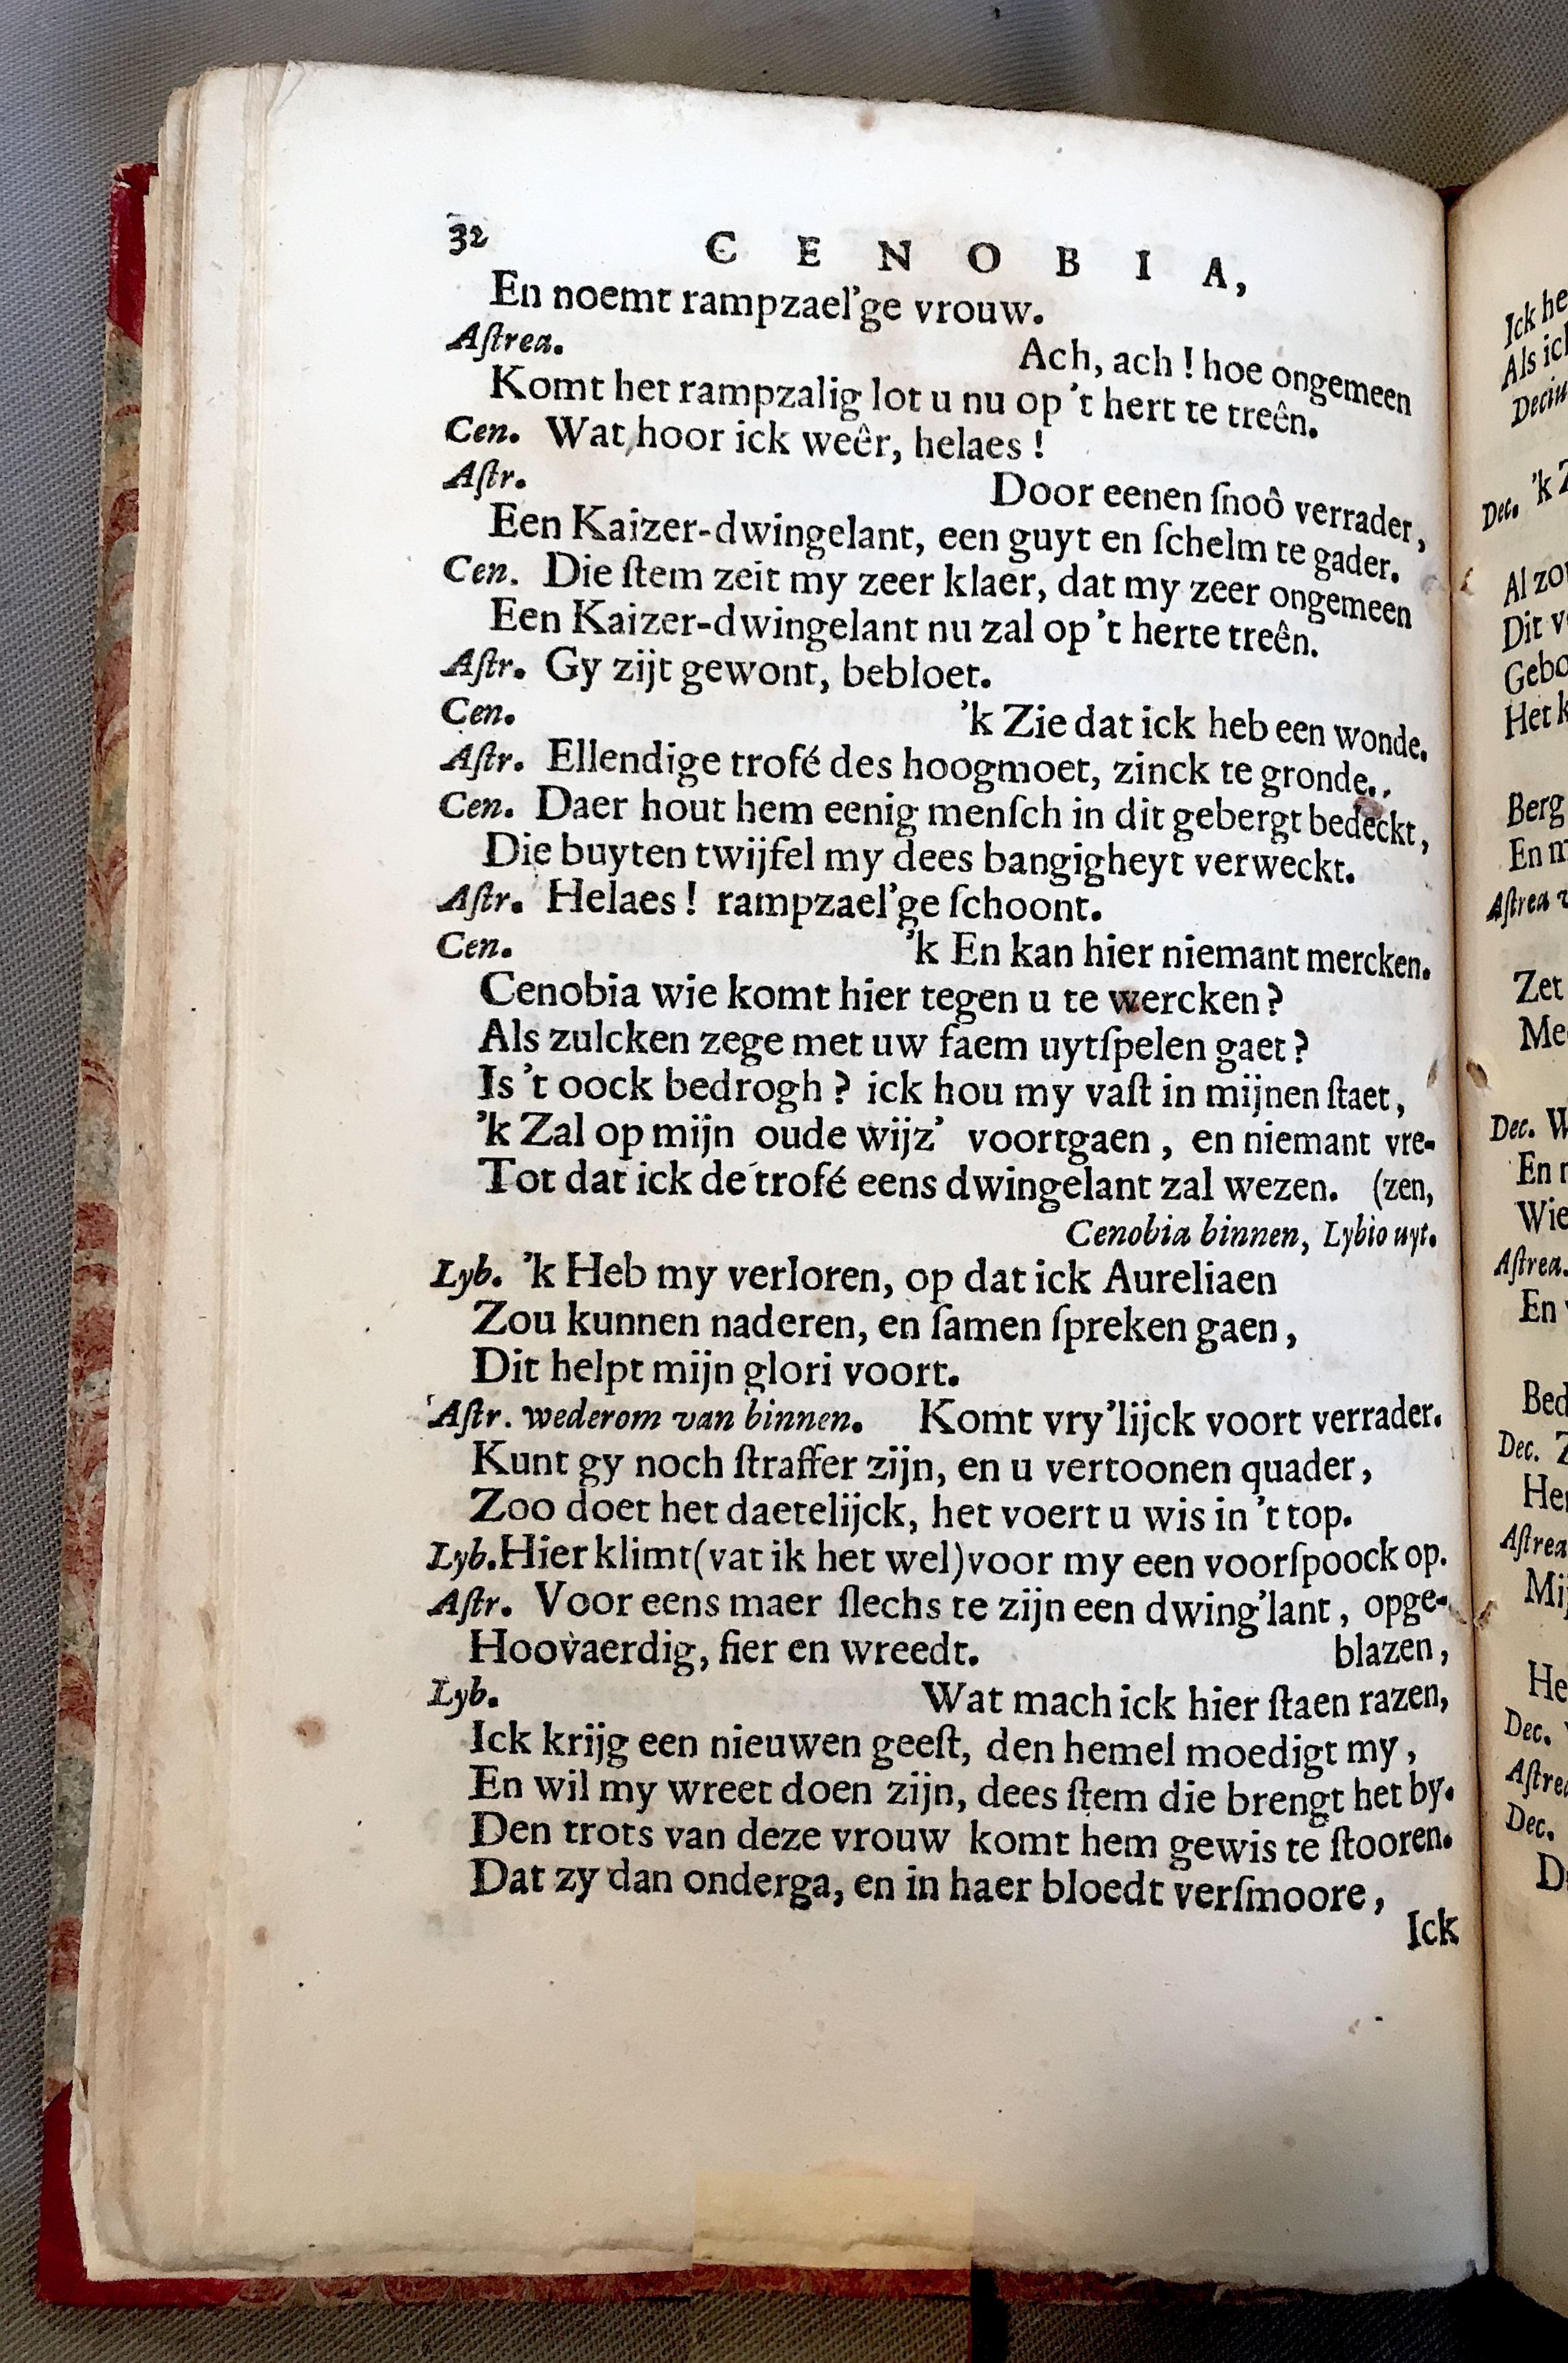 32 CENOBIA,
En noemt rampzael'ge vrouw.
Aſtrea. Ach, ach! hoe ongemeen
Komt het rampzalig lot u nu op 't hert te treên.
Cen. Wat hoor ick weêr, helaes!
Aſtr. Door eenen ſnoô verrader,
Een Kaizer-dwingelant, een guyt en ſchelm te gader.
Cen. Die ſtem zeit my zeer klaer, dat my zeer ongemeen
Een Kaizer-dwingelant nu zal op 't herte treên.
Aſtr. Gy zijt gewont, bebloet.
Cen. 'k Zie dat ick heb een wonde.
Aſtr. Ellendige trofé des hoogmoet, zinck te gronde.
Cen. Daer hout hem eenig menſch in dit gebergt bedeckt,
Die buyten twijfel my dees bangigheyt verweckt.
Aſtr. Helaes! rampzael'ge ſchoont.
Cen. 'k En kan hier niemant mercken.
Cenobia wie komt hier tegen u te wercken?
Als zulcken zege met uw faem uytſpelen gaet?
Is 't oock bedrogh? ick hou my vaſt in mijnen ſtaet,
'k Zal op mijn oude wijz' voortgaen, en niemant vre-
Tot dat ick de trofé eens dwingelant zal wezen. (zen,
Cenobia binnen, Lybio uyt.
Lyb. 'k Heb my verloren, op dat ick Aureliaen
Zou kunnen naderen, en ſamen ſpreken gaen,
Dit helpt mijn glori voort.
Aſtr. wederom van binnen. Komt vry'lijck voort verrader.
Kunt gy noch ſtraffer zijn, en u vertoonen quader,
Zoo doet het daetelijck, het voert u wis in 't top.
Lyb. Hier klimt (vat ik het wel) voor my een voorſpoock op.
Aſtr. Voor eens maer ſlechs te zijn een dwing'lant, opge-
Hoovaerdig, fier en wreedt. blazen,
Lyb. Wat mach ick hier ſtaen razen,
Ick krijg een nieuwen geeſt, den hemel moedigt my,
En wil my wreet doen zijn, dees ſtem die brengt het by.
Den trots van deze vrouw komt hem gewis te ſtooren.
Dat zy dan onderga, en in haer bloedt verſmoore,
Ick
Ick he
Als ic
Deciu
Dec. 'k Z
Al zo
Dit v
Gebo
Het k
Berg
En m
Aſtrea v
Zet
Me
Dec. W
En
Wie
Aſtrea.
En
Bed
Dec. Z
He
Aſtrea
Mij
He
Dec.
Aſtre
Dec.
D